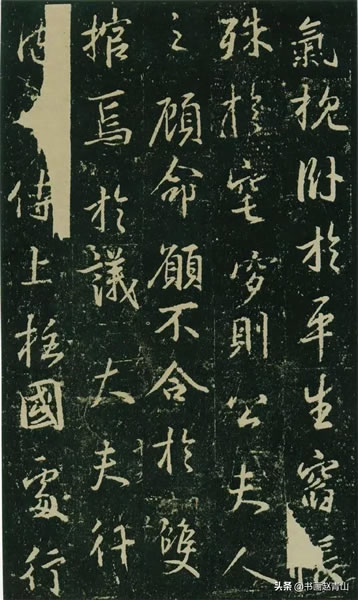 氣枕卧於平生
殊於窀穸則公夫人
之顧命願不合於雙
棺焉於議大夫行
侍上柱國處行
头条 @书画赵青山